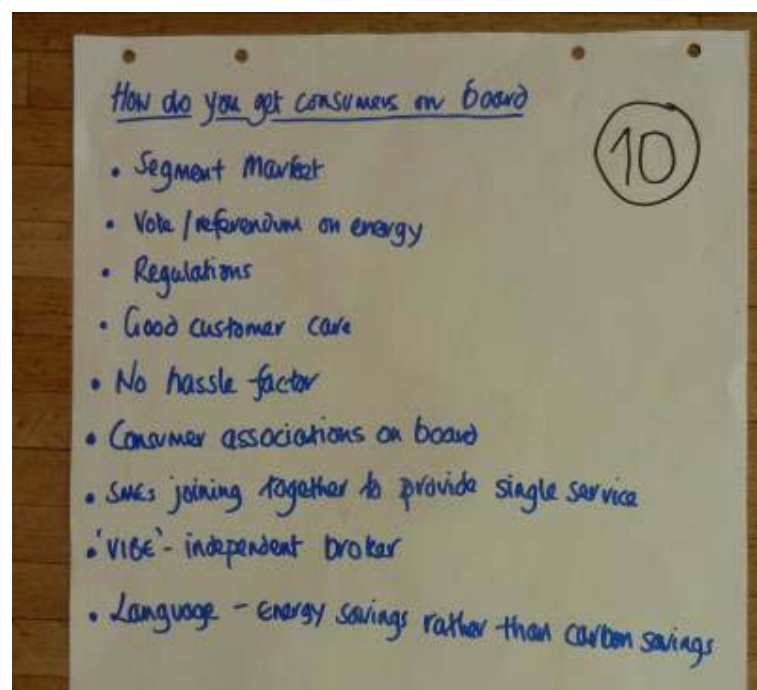 How do you get consumers on board
10
• Segment Market
• Vote / referendum on energy
• Regulations
• Good customer care
• No hassle factor
• Consumer associations on board
• SMEs joining together to provide single service
• 'VIBE' - independent broker
• Language - energy savings rather than carbon savings